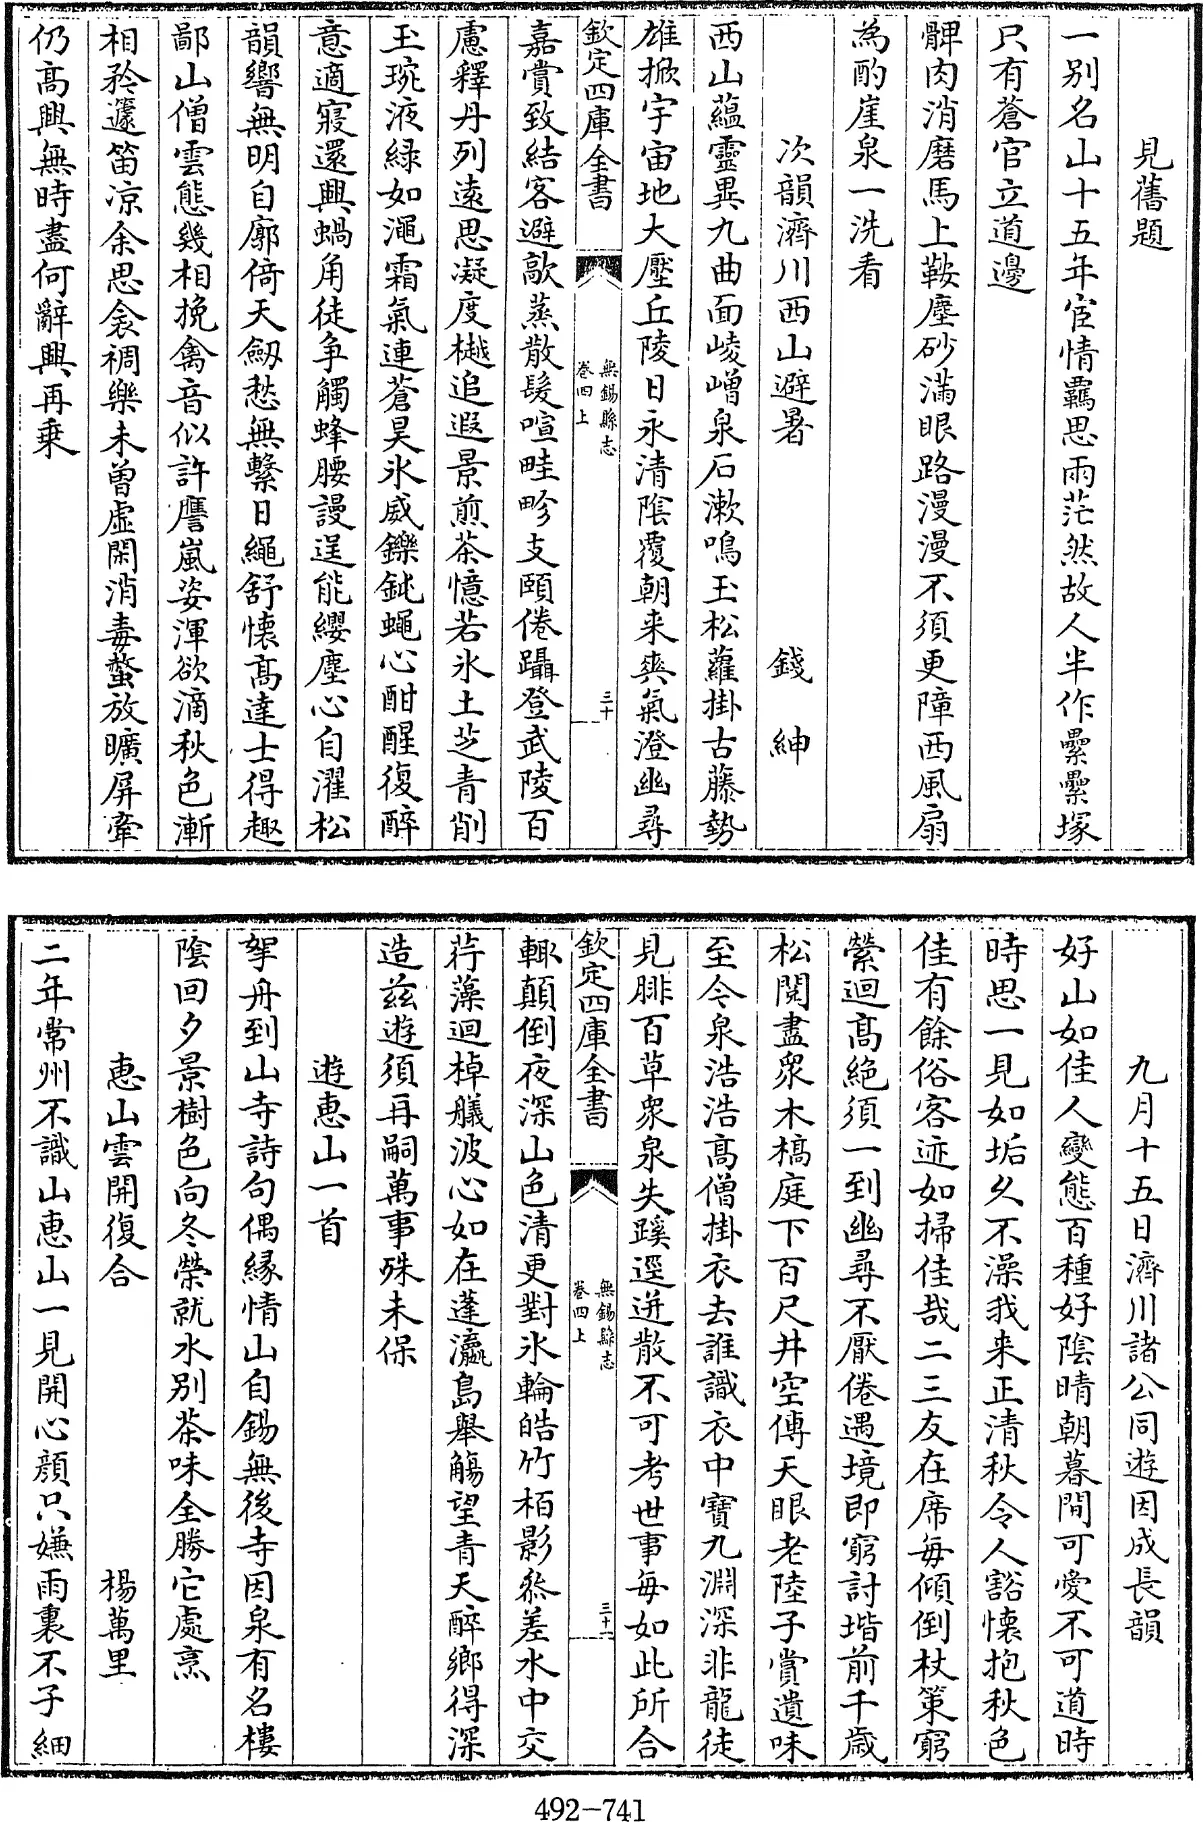 見舊題
一別名山十五年宦情羈思兩茫然故人半作纍纍塚
只有蒼官立道邊
髀肉消磨馬上鞍塵砂滿眼路漫漫不須更障西風扇
為酌崖泉一洗看
次韻濟川西山避暑 錢紳
西山蘊靈異九曲面崚嶒泉石漱鳴玉松蘿掛古藤勢
雄掀宇宙地大壓丘陵日永清陰覆朝来爽氣澄幽尋
欽定四庫全書
無錫縣志
卷四上
三十
嘉賞致結客避歊蒸散髮喧畦畛支頤倦躡登武陵百
慮釋丹列遠思凝度樾追遐景煎茶憶若氷土芝青削
玉琬液緑如澠霜氣連蒼昊氷威鑠鈍蠅心酣醒復醉
意適寢還興蝸角徒争觸蜂腰謾逞能纓塵心自濯松
韻響無明自廓倚天劒愁無繫日繩舒懐髙達士得趣
鄙山僧雲態幾相挽禽音似許譍嵐姿渾欲滴秋色漸
相矜籧笛凉余思衾裯樂未曽虚閑消毒螫放曠屏牽
仍髙興無時盡何辭興再乗
九月十五日濟川諸公同遊因成長韻
好山如佳人變態百種好陰晴朝暮間可愛不可道時
時思一見如垢久不澡我来正清秋令人豁懐抱秋色
佳有餘俗客迹如掃佳哉二三友在席每傾倒杖策窮
縈迴髙絶須一到幽尋不厭倦遇境即窮討堦前千歳
松閲盡衆木槁庭下百尺井空傳天眼老陸子賞遺味
至今泉浩浩髙僧掛衣去誰識衣中寶九淵深非龍徒
見腓百草衆泉失蹊逕迸散不可考世事每如此所合
欽定四庫全書
無錫縣志
卷四上
三十一
輙顛倒夜深山色清更對氷輪皓竹栢影叅差水中交
荇藻迴棹艤波心如在蓬瀛島舉觴望青天醉鄉得深
造兹遊須再嗣萬事殊未保
遊恵山一首
挐舟到山寺詩句偶縁情山自錫無後寺因泉有名樓
陰回夕景樹色向冬榮就水別茶味全勝它處烹
恵山雲開復合 楊萬里
二年常州不識山恵山一見開心顔只嫌雨裏不子細
492-741